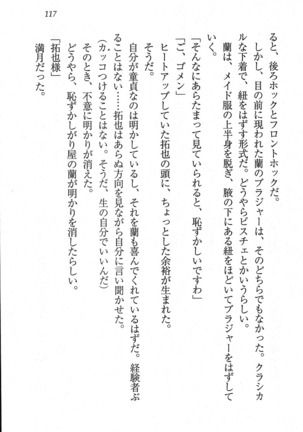 117
ると、後ろホックとフロントホックだ。
しかし、目の前に現われた蘭のブラジャーは、そのどちらでもなかった。クラシカ
ルな下着で、紐をはずす形式だ。どうやらビスチェとかいうらしい。
蘭は、メイド服の上半身を脱ぎ、腋の下にある紐をほどいてブラジャーをはずして
いく。
「そんなにあらたまって見ていられると、恥ずかしいですわ」
「ご、ゴメン」
ヒートアップしていた拓也の頭に、ちょっとした余裕が生まれた。
そうだ。
自分が童貞なのは明かしているし、それを蘭も喜んでくれているはずだ。経験者ぶ
ることはない……拓也はあらぬ方向を見ながら自分に言い聞かせた。
（カッコつけることはない。そうだ、生の自分でいいんだ）
そのとき、不意に明かりが消えた。
どうやら、恥ずかしがり屋の蘭が明かりを消したらしい。
「拓也様」
満月だった。